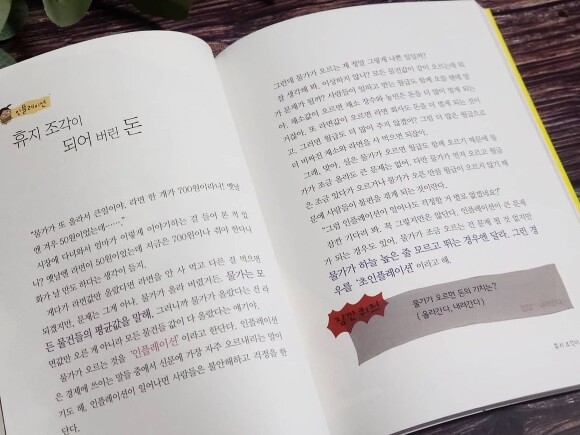 인플레이션
휴지 조각이
되어 버린 돈
"물가가 또 올라서 큰일이야. 라면 한 개가 700원이라니! 옛날
엔 겨우 50원이었는데……."
시장에 다녀와서 엄마가 이렇게 이야기하는 걸 들어 본 적 있
니? 옛날엔 라면이 50원이었는데 지금은 700원이나 줘야 한다니
화가 날 만도 하다는 생각이 들지.
게다가 라면값만 올랐다면 라면을 안 사 먹고 다른 걸 먹으면
되겠지만, 문제는 그게 아냐. 물가가 올라 버렸거든. 물가는 모
든 물건들의 평균값을 말해. 그러니까 물가가 올랐다는 건 라
면값만 오른 게 아니라 모든 물건들 값이 다 올랐다는 얘기야.
물가가 오르는 것을 '인플레이션'이라고 한단다. 인플레이션
은 경제에 쓰이는 말들 중에서 신문에 가장 자주 오르내리는 말이
기도 해. 인플레이션이 일어나면 사람들은 불안해하고 걱정을 한
단다.
그런데 물가가 오르는 게 정말 그렇게 나쁜 일일까?
잘 생각해 봐. 이상하지 않니? 모든 물건값이 같이 오르는데 뭐
가 문제가 될까? 사람들이 일하고 받는 월급도 함께 오를 텐데 말
야. 채소값이 오르면 채소 장수와 농민은 돈을 더 많이 벌게 되는
거잖아. 또 라면값이 오르면 라면 회사도 돈을 더 많이 버는 것이
고. 그러면 월급도 더 많이 주지 않겠어? 그럼 더 많은 월급으로
더 비싸진 채소와 라면을 사 먹으면 되잖아.
그래, 맞아. 실은 물가가 오르면 월급도 함께 오르기 때문에 물
가가 조금 올라도 큰 문제는 없어. 다만 물가가 먼저 오르고 월급
은 조금 있다가 오르거나 물가가 오른 만큼 월급이 오르지 않기 때
문에 사람들이 불편을 겪게 되는 것이란다.
"그럼 인플레이션이 일어나도 걱정할 게 별로 없겠네요?"
잠깐 기다려 봐. 꼭 그렇지만은 않단다. 인플레이션이 큰 문제
가 되는 경우도 있어. 물가가 조금 오르는 건 문제 될 것 없지만
물가가 하늘 높은 줄 모르고 뛰는 경우엔 달라. 그런 경
우를 '초인플레이션'이라고 해.
잠깐 퀴즈!
물가가 오르면 돈의 가치는?
( 올라간다, 내려간다 )
정답 : 내려간다
휴지 조각이